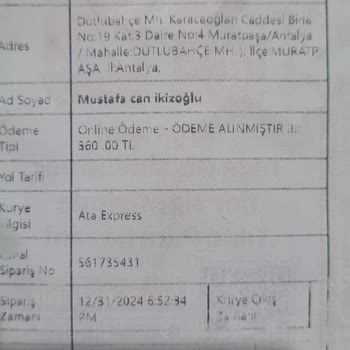 Dutlubahçe Mh. Karacaoğlan Caddesi Bina
No:19 Kat:3 Daire No:4 Muratpaşa/Antalya
Adres
/ Mahalle:DUTLUBAHÇE MH. ), İlçe:MURATP
AŞA, İl:Antalya,
Ad Soyad Mustafa can ikizoğlu
Ödeme Online Ödeme - ÖDEME ALINMIŞTIR
Tipi 360.00 TL
Yol Tarifi
Kurye
Bilgisi Ata Express
Sipariş No 561735431
Sipariş 12/31/2024 6:52:34 Kurye Çıkış
Zamanı PM Zamanı